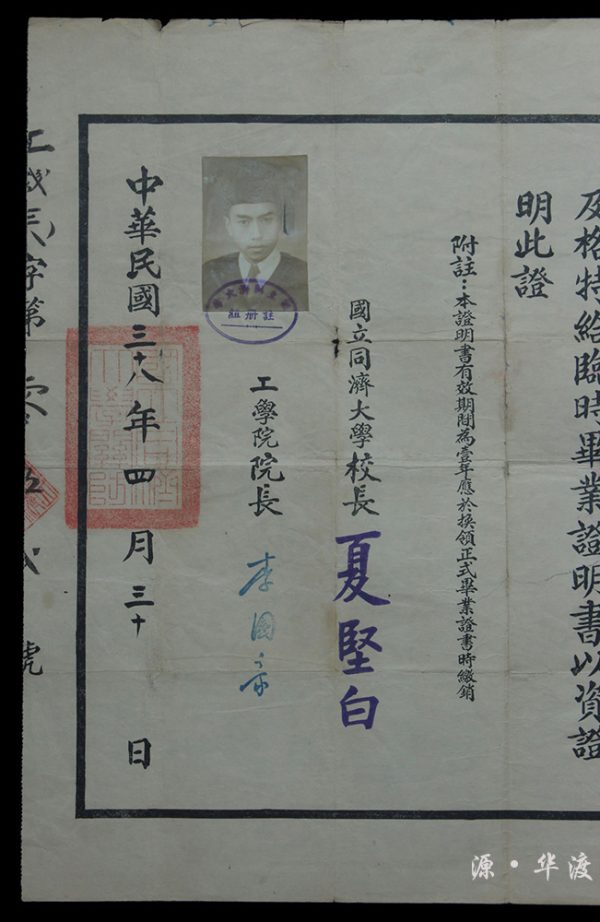 及格特給臨時畢業證明書以資證
明此證
附註：本證明書有效期間為壹年應於換領正式畢業證書時繳銷
國立同濟大學校長 夏堅白
工學院院長 李國豪
註冊組
中華民國三十八年四月三十日
字第
號
源·华渡